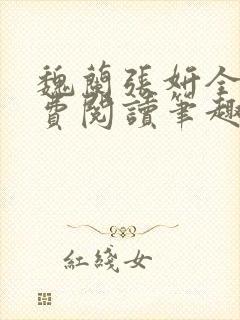 魏蘭張妍全
費閱讀筆趣
紅綫女